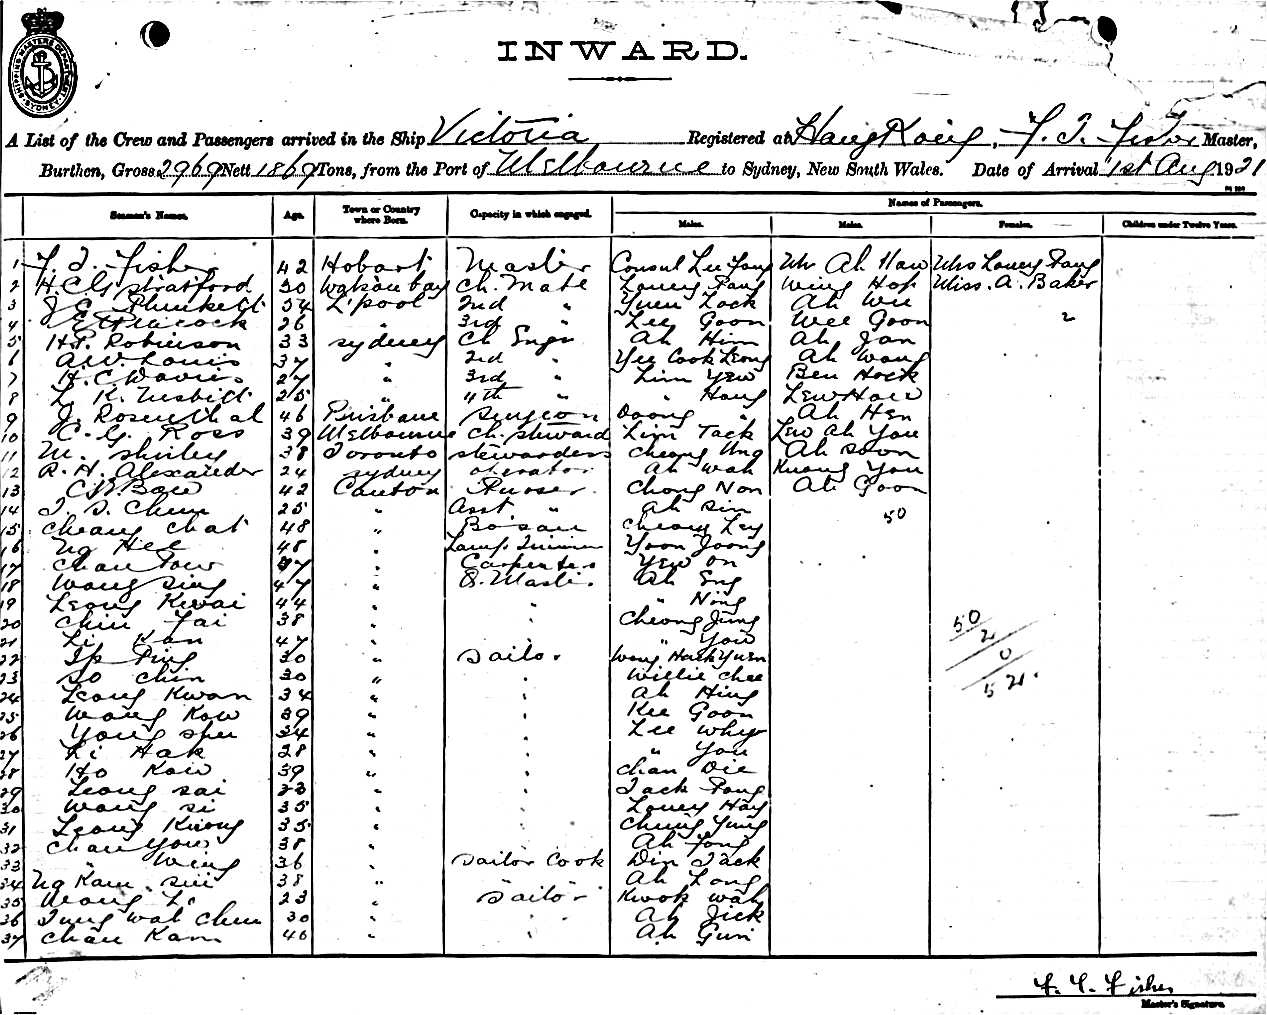 SHIPPING MASTERS DEPARTMENT SYDNEY
INWARD.
A List of the Crew and Passengers arrived in the Ship Victoria Registered at Hong Kong, F. T. Fisher Master,
Burthen, Gross 2969 Nett 1869 Tons, from the Port of Melbourne to Sydney, New South Wales. Date of Arrival 1st Aug 1921
Seamen's Names. Age. Town or Country where Born. Capacity in which engaged. Names of Passengers.
Males. Males. Females. Children under Twelve Years.
1 F. T. Fisher 42 Hobart Master Consul Lee Fong Mr Ah Haw Mrs Louey Pang
2 H. C. G. Stratford 30 Watson bay Ch. Mate Louey Pang Wing Hop Miss. A. Baker
3 J. E. Plunkett 54 L'pool 2nd " Yuen Lock Ah Wee
4 Hiacock 26 " 3rd " Lee Goon Wee Goon 2
5 H. P. Robinson 33 Sydney Ch Engr Ah Him Ah Jan
6 A. W. Louis 37 " 2nd " Yee Cook Leong Ah Wang
7 H. C. Davies 27 " 3rd " Lim Yew Ben Hock
8 L. K. Nesbitt 25 " 4th " " Hong Lew How
9 J. Rosenthal 46 Brisbane Surgeon Doong " Ah Hen
10 C. G. Ross 39 Melbourne Ch. Steward Lim Tack Lew Ah You
11 M. Shirley 38 Toronto Stewardess Cheong Ung Ah Soon
12 R. H. Alexander 24 Sydney Operator Ah Wah Kwong You
13 42 Canton Purser Chong Non Ah Goon
14 T. S. Chun 25 " Asst. " Ah Sin 50
15 Cheang Chat 48 " Bosan Cheong Ley
16 Ng Hee 48 " Lamp Trimmer Yoon Joong
17 Chan Tow 47 " Carpenter Yew On
18 Wong Sing 47 " Q. Master Ah Eng
19 Leong Kwai 44 " " " Ning
20 Chiu Fai 38 " " Cheong Jung
21 Li Kan 47 " " " You
22 Ip Ping 30 " Sailor Wong Hack Yuen
23 So Chin 30 " " Willie Chee
24 Leong Kwan 34 " " Ah Hing
25 Wong Kow 39 " " Kee Goon
26 Yong Shu 34 " " Lee Why
27 Li Hak 28 " " " You
28 Ho Kow 39 " " Chan Die
29 Leong Sai 23 " " Jack Pang
30 Wong Si 35 " " Louey Hay
31 Leong Kwong 35 " " Chung Yung
32 Chan Yow 38 " " Ah Fong
33 " Wing 36 " Sailor Cook Din Jack
34 Ng Kam Sui 38 " " Ah Long
35 Wong Li 23 " Sailor Kwok Wah
36 Tung Wat Chun 30 " " Ah Jick
37 Chan Kam 46 " " Ah Gun
50
2
0
52.
F. T. Fisher
Master's Signature.